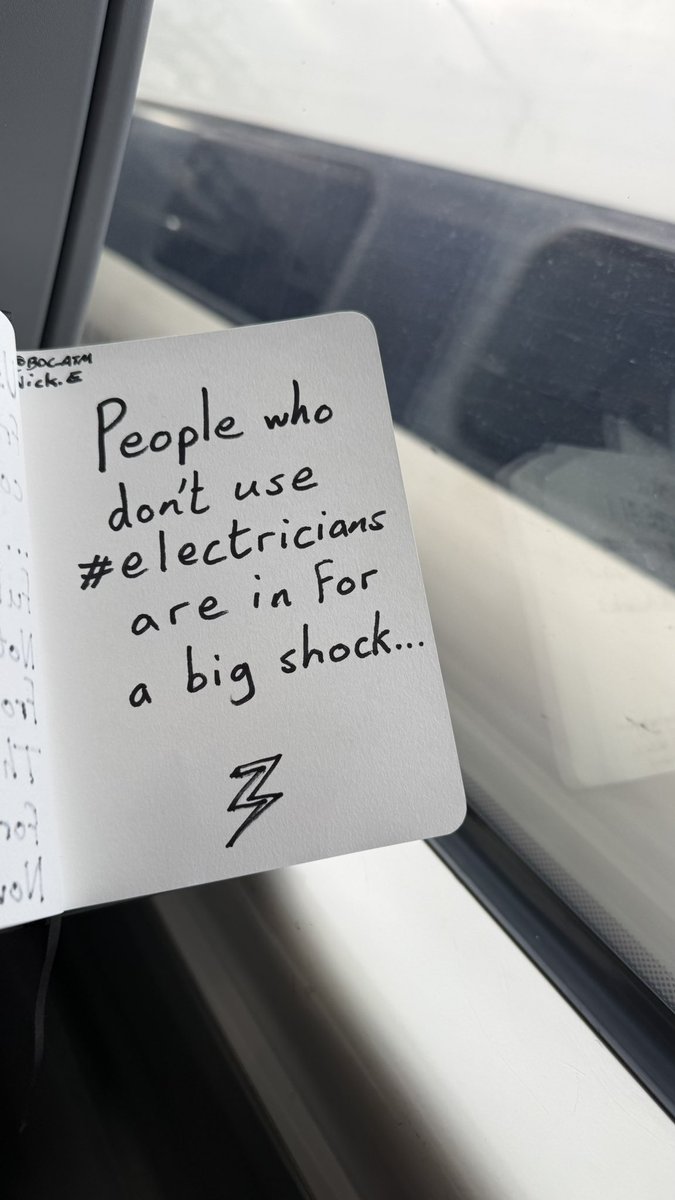 @BOCATM
Nick.E
People who
don't use
#electricians
are in for
a big shock...